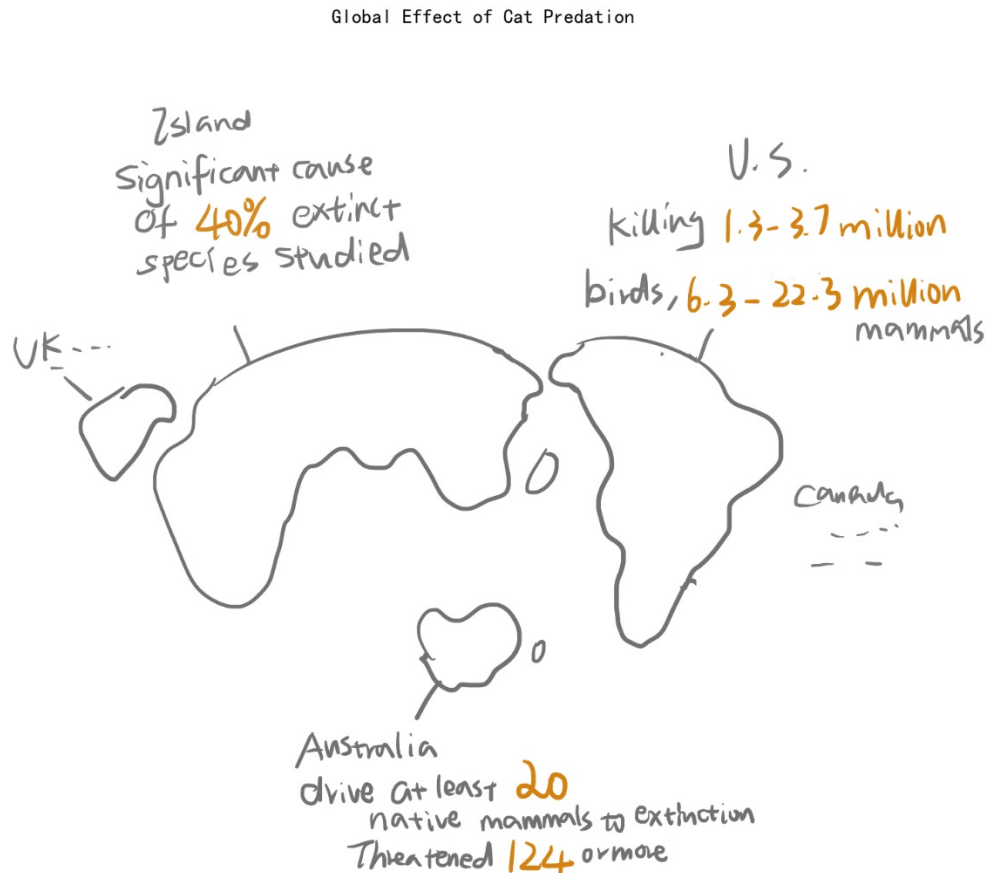 Global Effect of Cat Predation
Island
Significant cause
of 40% extinct
species studied
U.S.
Killing 1.3-3.7 million
birds, 6.3-22.3 million
mammals
UK
Canada
Australia
drive at least 20
native mammals to extinction
Threatened 124 or more